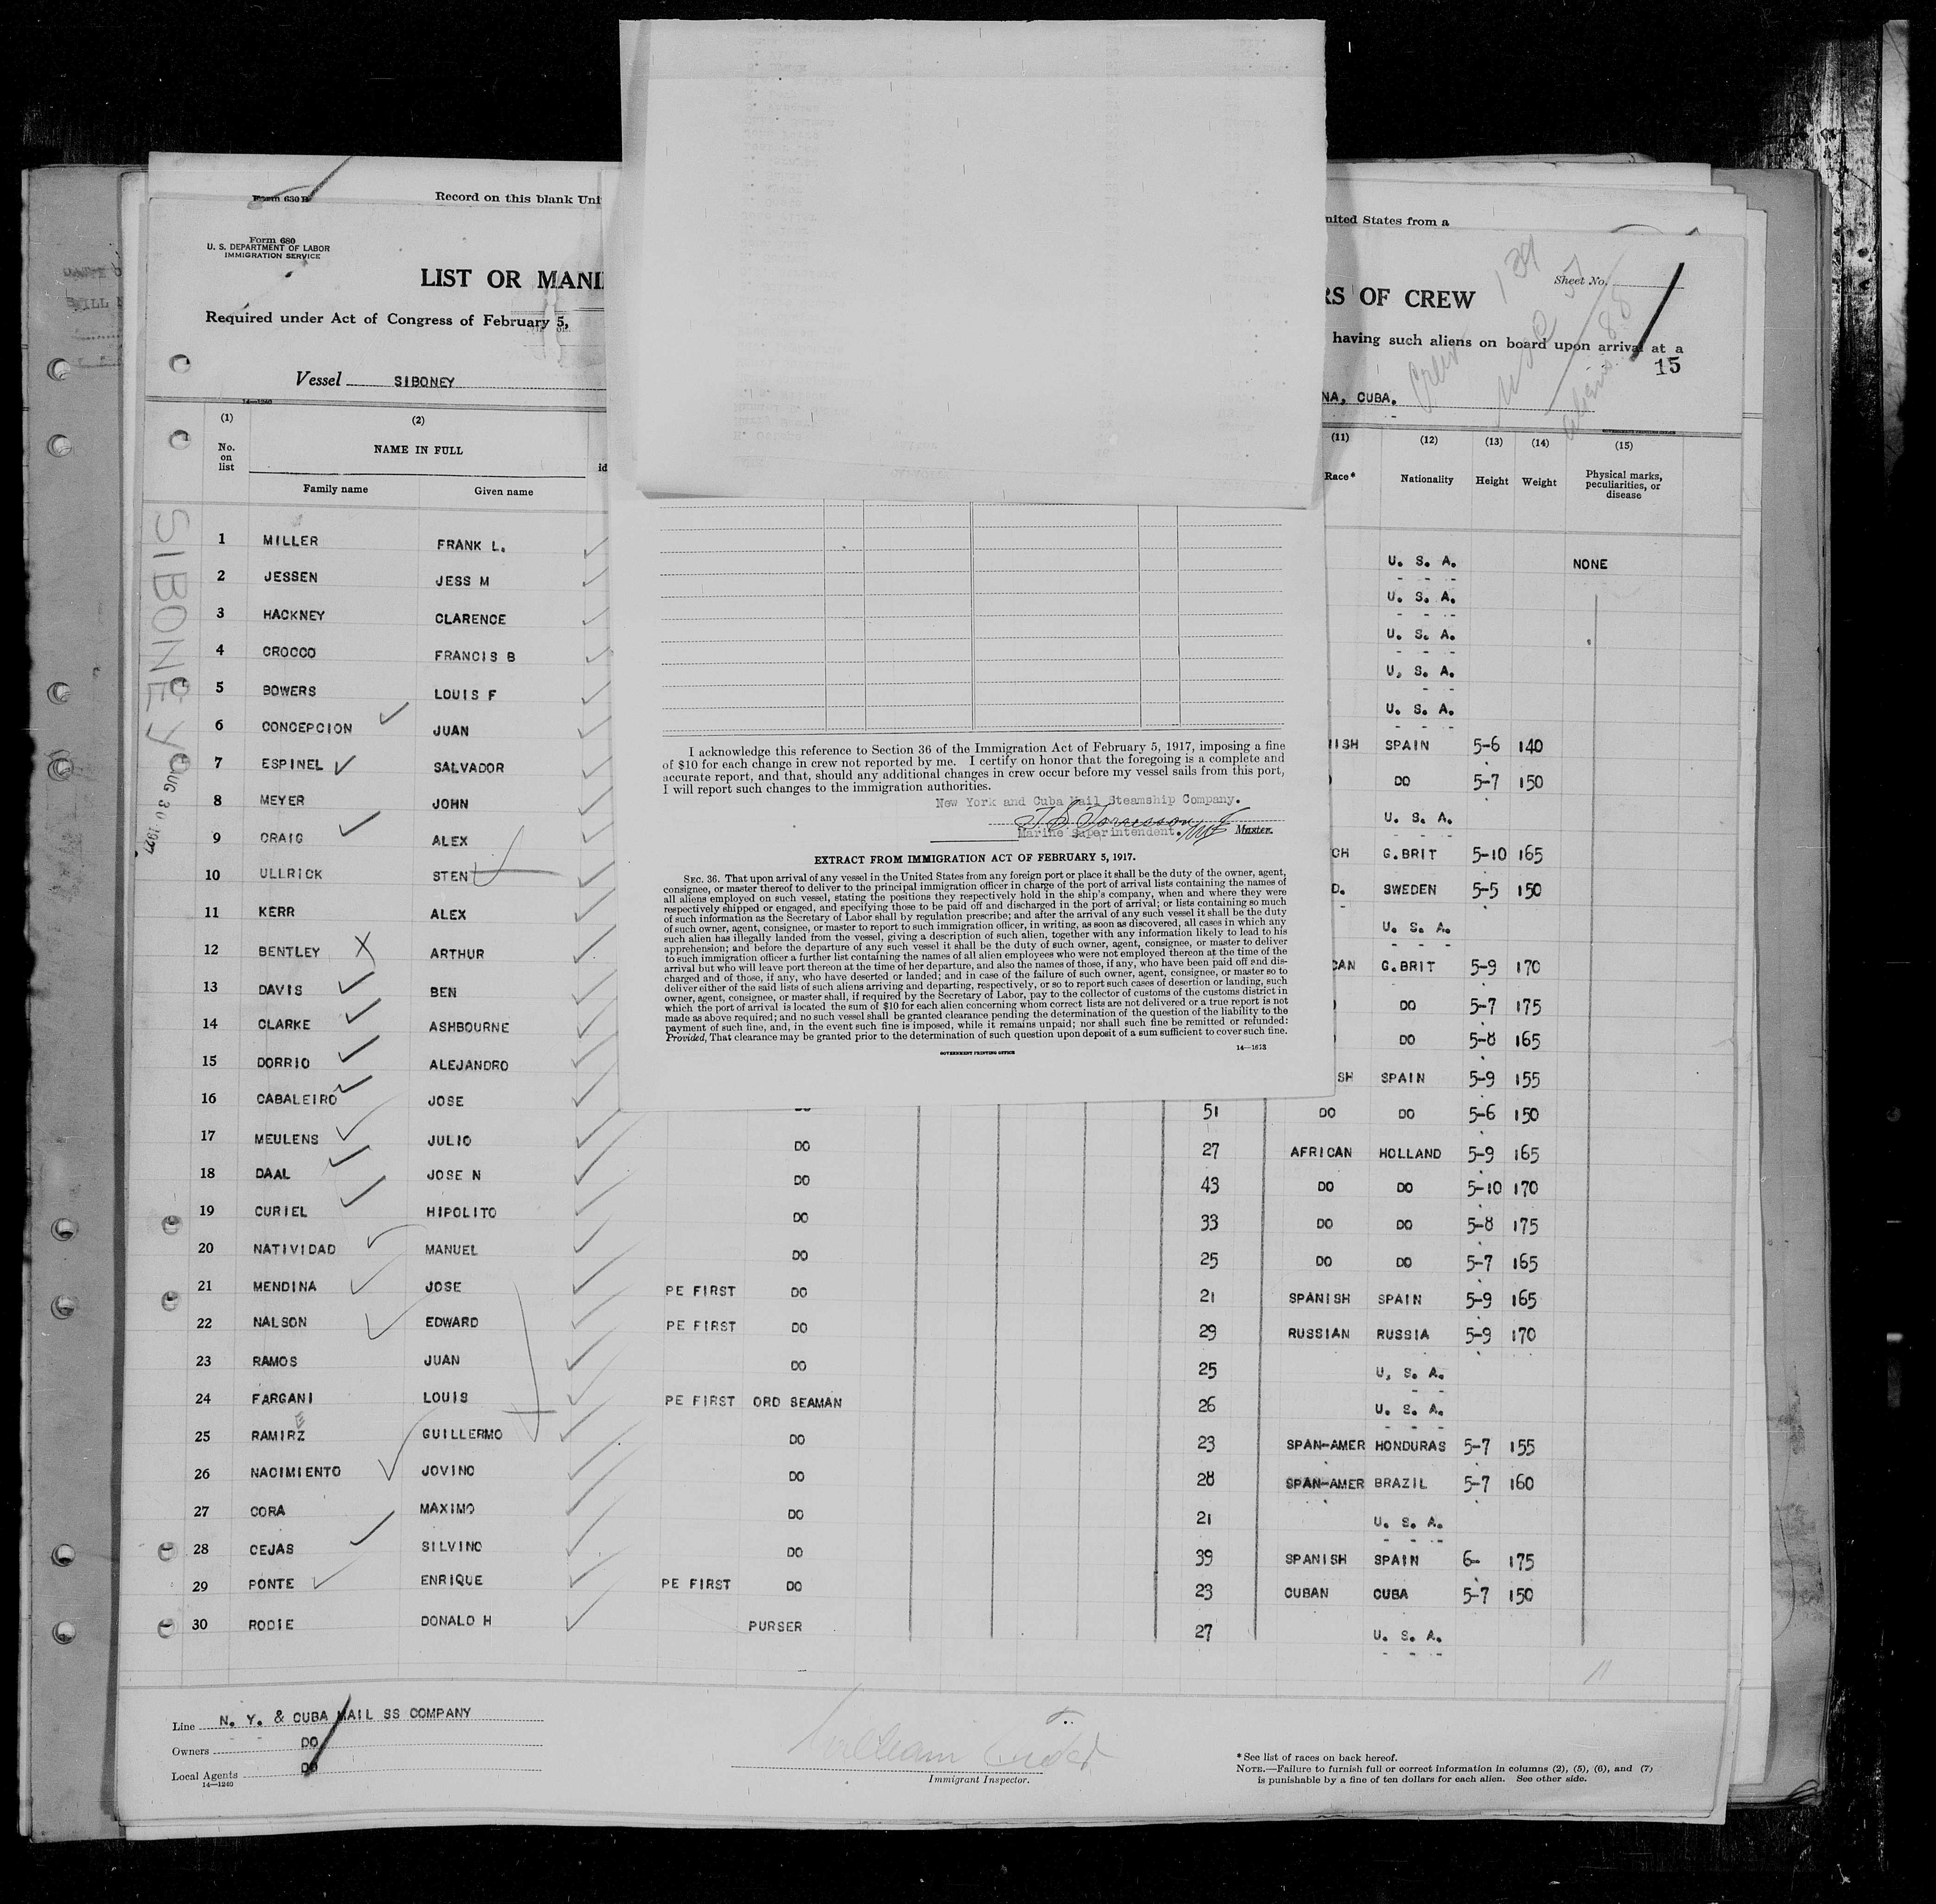 Form 630 B
Record on this blank Uni
nited States from a
Form 680
U. S. DEPARTMENT OF LABOR
IMMIGRATION SERVICE
Sheet No.
LIST OR MANI
RS OF CREW
Required under Act of Congress of February 5,
having such aliens on board upon arrival at a
15
Vessel SIBONEY
NA, CUBA.
14—1240
GOVERNMENT PRINTING OFFICE
(1) (2) (11) (12) (13) (14) (15)
No. on list NAME IN FULL id Race* Nationality Height Weight Physical marks, peculiarities, or disease
Family name Given name
SIBONEY
AUG 30 1927
1 MILLER FRANK L. U. S. A. NONE
2 JESSEN JESS M U. S. A.
3 HACKNEY CLARENCE U. S. A.
4 CROCCO FRANCIS B U. S. A.
5 BOWERS LOUIS F U. S. A.
6 CONCEPCION JUAN ISH SPAIN 5-6 140
7 ESPINEL SALVADOR DO 5-7 150
8 MEYER JOHN U. S. A.
9 CRAIG ALEX CH G.BRIT 5-10 165
10 ULLRICK STEN D. SWEDEN 5-5 150
11 KERR ALEX U. S. A.
12 BENTLEY X ARTHUR CAN G.BRIT 5-9 170
13 DAVIS BEN DO 5-7 175
14 CLARKE ASHBOURNE DO 5-8 165
15 DORRIO ALEJANDRO SH SPAIN 5-9 155
16 CABALEIRO JOSE 51 DO DO 5-6 150
17 MEULENS JULIO DO 27 AFRICAN HOLLAND 5-9 165
18 DAAL JOSE N DO 43 DO DO 5-10 170
19 CURIEL HIPOLITO DO 33 DO DO 5-8 175
20 NATIVIDAD MANUEL DO 25 DO DO 5-7 165
21 MENDINA JOSE PE FIRST DO 21 SPANISH SPAIN 5-9 165
22 NALSON EDWARD PE FIRST DO 29 RUSSIAN RUSSIA 5-9 170
23 RAMOS JUAN DO 25 U. S. A.
24 FARGANI LOUIS PE FIRST ORD SEAMAN 26 U. S. A.
E
25 RAMIRZ GUILLERMO DO 23 SPAN-AMER HONDURAS 5-7 155
26 NACIMIENTO JOVINO DO 28 SPAN-AMER BRAZIL 5-7 160
27 CORA MAXIMO DO 21 U. S. A.
28 CEJAS SILVINO DO 39 SPANISH SPAIN 6- 175
29 PONTE ENRIQUE PE FIRST DO 23 CUBAN CUBA 5-7 150
30 RODIE DONALD H PURSER 27 U. S. A.
I acknowledge this reference to Section 36 of the Immigration Act of February 5, 1917, imposing a fine
of $10 for each change in crew not reported by me. I certify on honor that the foregoing is a complete and
accurate report, and that, should any additional changes in crew occur before my vessel sails from this port,
I will report such changes to the immigration authorities.
New York and Cuba Mail Steamship Company.
Marine Superintendent. Master.
EXTRACT FROM IMMIGRATION ACT OF FEBRUARY 5, 1917.
SEC. 36. That upon arrival of any vessel in the United States from any foreign port or place it shall be the duty of the owner, agent,
consignee, or master thereof to deliver to the principal immigration officer in charge of the port of arrival lists containing the names of
all aliens employed on such vessel, stating the positions they respectively hold in the ship's company, when and where they were
respectively shipped or engaged, and specifying those to be paid off and discharged in the port of arrival; or lists containing so much
of such information as the Secretary of Labor shall by regulation prescribe; and after the arrival of any such vessel it shall be the duty
of such owner, agent, consignee, or master to report to such immigration officer, in writing, as soon as discovered, all cases in which any
such alien has illegally landed from the vessel, giving a description of such alien, together with any information likely to lead to his
apprehension; and before the departure of any such vessel it shall be the duty of such owner, agent, consignee, or master to deliver
to such immigration officer a further list containing the names of all alien employees who were not employed thereon at the time of the
arrival but who will leave port thereon at the time of her departure, and also the names of those, if any, who have been paid off and dis-
charged and of those, if any, who have deserted or landed; and in case of the failure of such owner, agent, consignee, or master so to
deliver either of the said lists of such aliens arriving and departing, respectively, or so to report such cases of desertion or landing, such
owner, agent, consignee, or master shall, if required by the Secretary of Labor, pay to the collector of customs of the customs district in
which the port of arrival is located the sum of $10 for each alien concerning whom correct lists are not delivered or a true report is not
made as above required; and no such vessel shall be granted clearance pending the determination of the question of the liability to the
payment of such fine, and, in the event such fine is imposed, while it remains unpaid; nor shall such fine be remitted or refunded:
Provided, That clearance may be granted prior to the determination of such question upon deposit of a sum sufficient to cover such fine.
GOVERNMENT PRINTING OFFICE
14—1613
Line N. Y. & CUBA MAIL SS COMPANY
Owners DO
Local Agents DO
14—1240
Immigrant Inspector.
*See list of races on back hereof.
NOTE.—Failure to furnish full or correct information in columns (2), (5), (6), and (7)
is punishable by a fine of ten dollars for each alien. See other side.